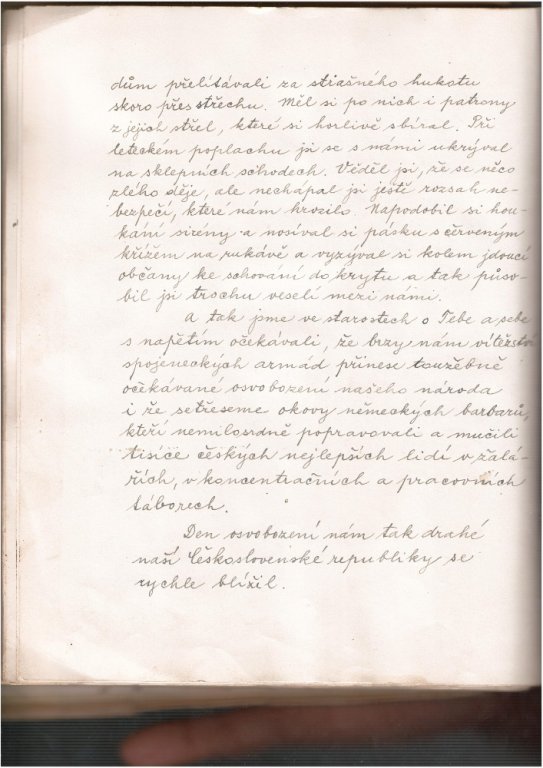 dům přelítávali za strašného hukotu
skoro přes střechu. Měl si po nich i patrony
z jejich střel, které si horlivě sbíral. Při
leteckém poplachu jsi se s námi ukrýval
na sklepních schodech. Věděl jsi, že se něco
zlého děje, ale nechápal jsi ještě rozsah ne-
bezpečí, které nám hrozilo. Napodobil si hou-
kání sirény a nosíval si pásku s červeným
křížem na rukávě a vyzýval si kolem jdoucí
občany ke schování do krytu a tak působ-
bil jsi trochu veselí mezi námi.
A tak jsme ve starostech o Tebe a sebe
s napětím očekávali, že brzy nám vítězství
spojeneckých armád přinese toužebně
očekávané osvobození našeho národa
i že setřeseme okovy německých barbarů,
kteří nemilosrdně popravovali a mučili
tisíce českých nejlepších lidí v žalá-
řích, v koncentračních a pracovních
táborech.
Den osvobození nám tak drahé
naší Československé republiky se
rychle blížil.